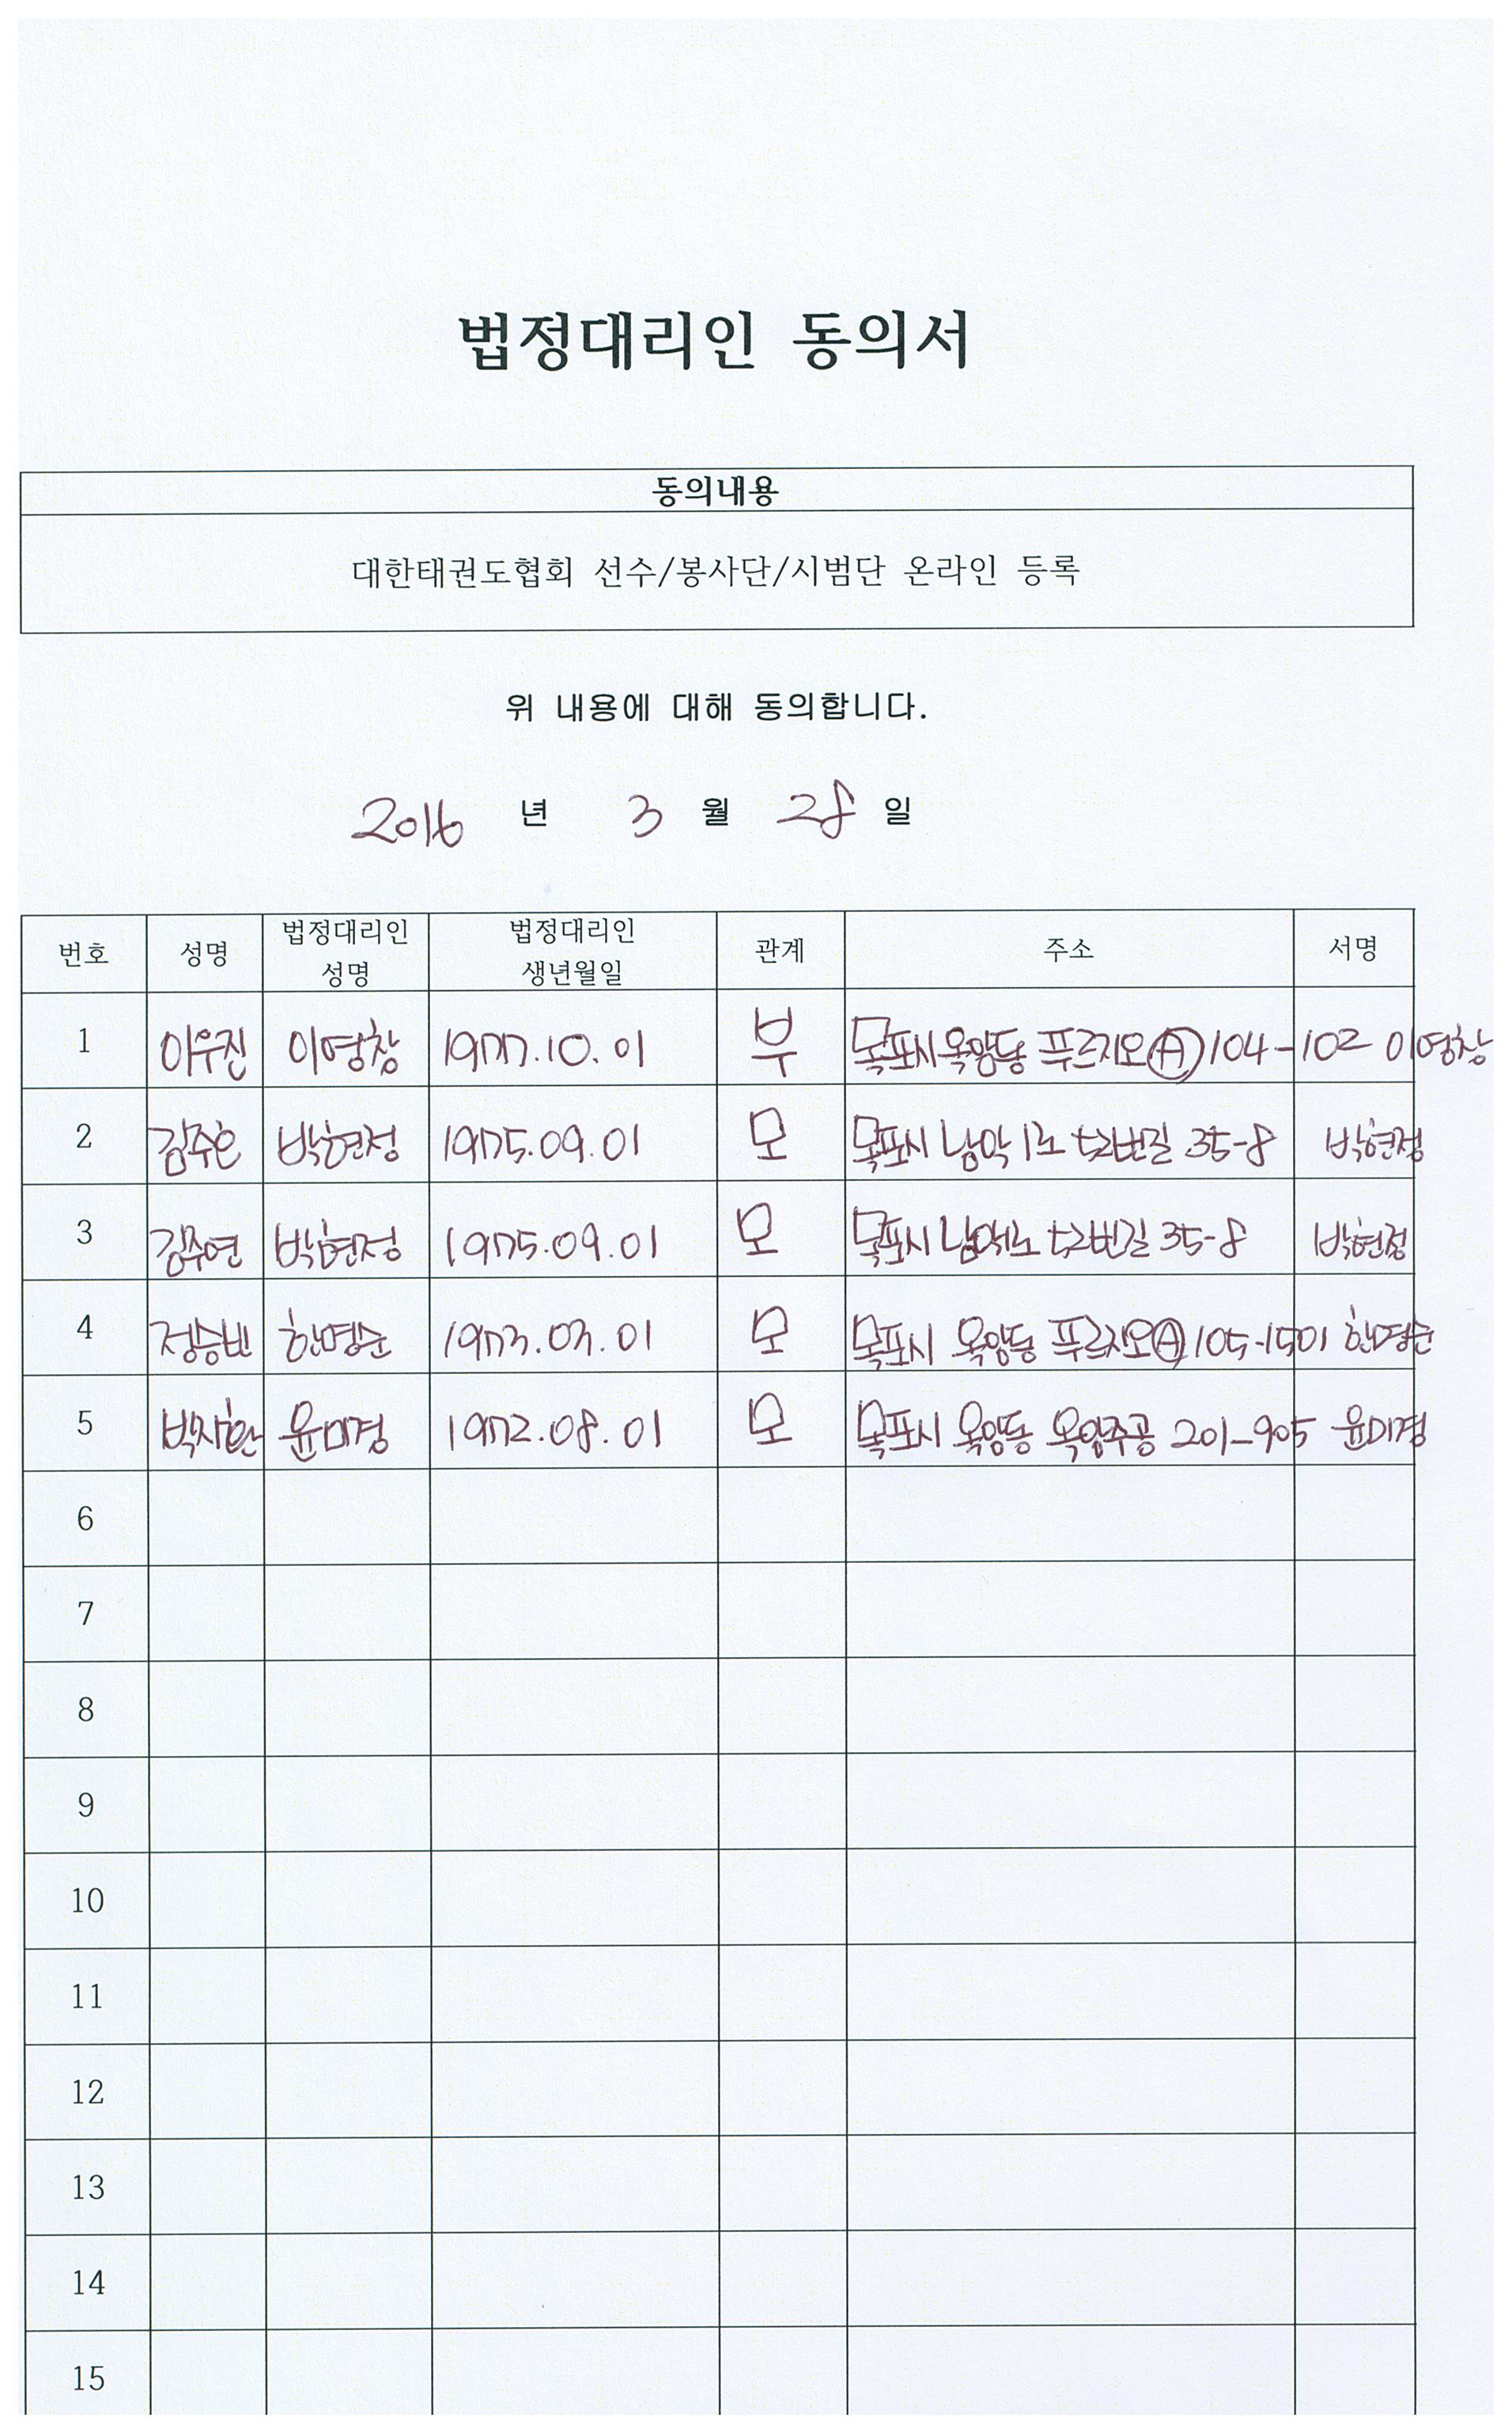 법정대리인 동의서
동의내용
대한태권도협회 선수/봉사단/시범단 온라인 등록
위 내용에 대해 동의합니다.
2016 년 3 월 28 일
번호 성명 법정대리인 성명 법정대리인 생년월일 관계 주소 서명
1 이우진 이영창 1977.10.01 부 목포시 옥암동 푸르지오Ⓐ 104-102 이영창
2 김주은 박현정 1975.09.01 모 목포시 남악1로 52번길 35-8 박현정
3 김주연 박현정 1975.09.01 모 목포시 남악1로 52번길 35-8 박현정
4 정승빈 한명순 1973.03.01 모 목포시 옥암동 푸르지오Ⓐ 105-1501 한명순
5 박지환 윤미경 1972.08.01 모 목포시 옥암동 옥암주공 201-905 윤미경
6
7
8
9
10
11
12
13
14
15